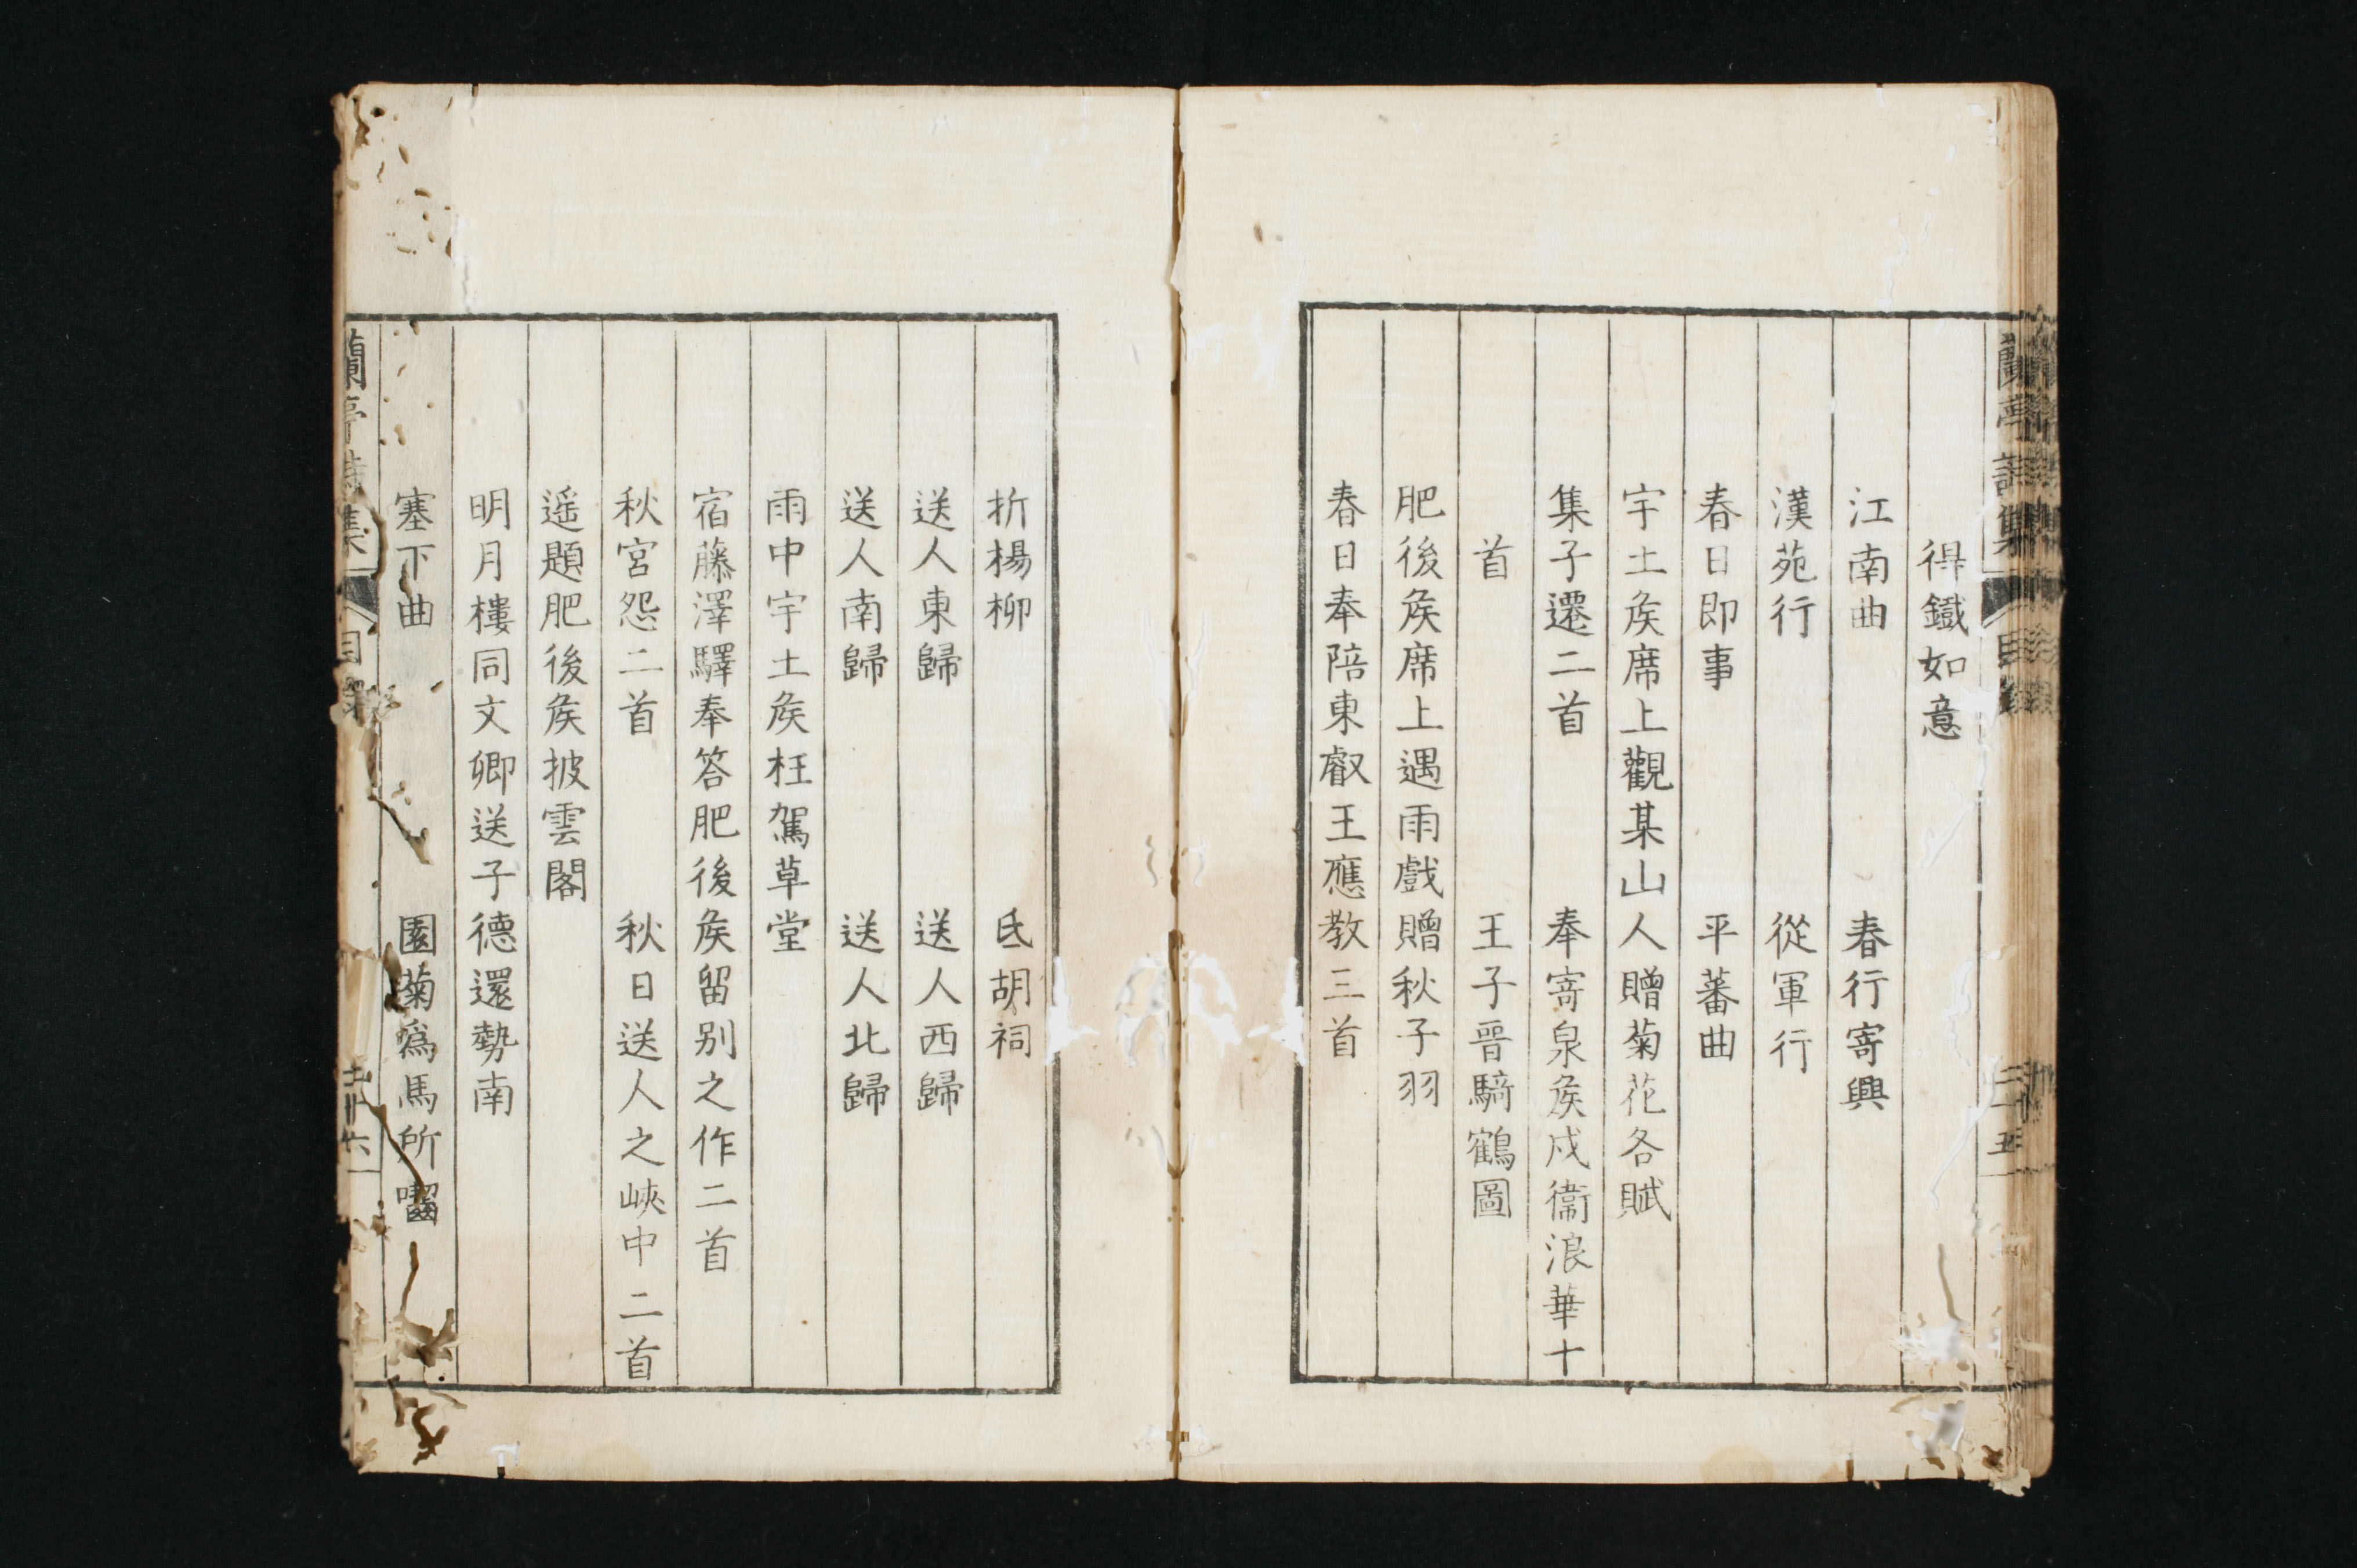 蘭亭詩集 目錄 二十五
得鐵如意
江南曲 春行寄興
漢苑行 從軍行
春日即事 平蕃曲
宇土矦席上觀某山人贈菊花各賦
集子遷二首 奉寄泉矦戍衞浪華十
首 王子晉騎鶴圖
肥後矦席上遇雨戲贈秋子羽
春日奉陪東叡王應教三首
折楊柳 氐胡祠
送人東歸 送人西歸
送人南歸 送人北歸
雨中宇土矦枉駕草堂
宿藤澤驛奉答肥後矦留别之作二首
秋宮怨二首 秋日送人之峽中二首
遥題肥後矦披雲閣
明月樓同文卿送子德還勢南
塞下曲 園菊爲馬所囓
蘭亭詩集 目錄 六